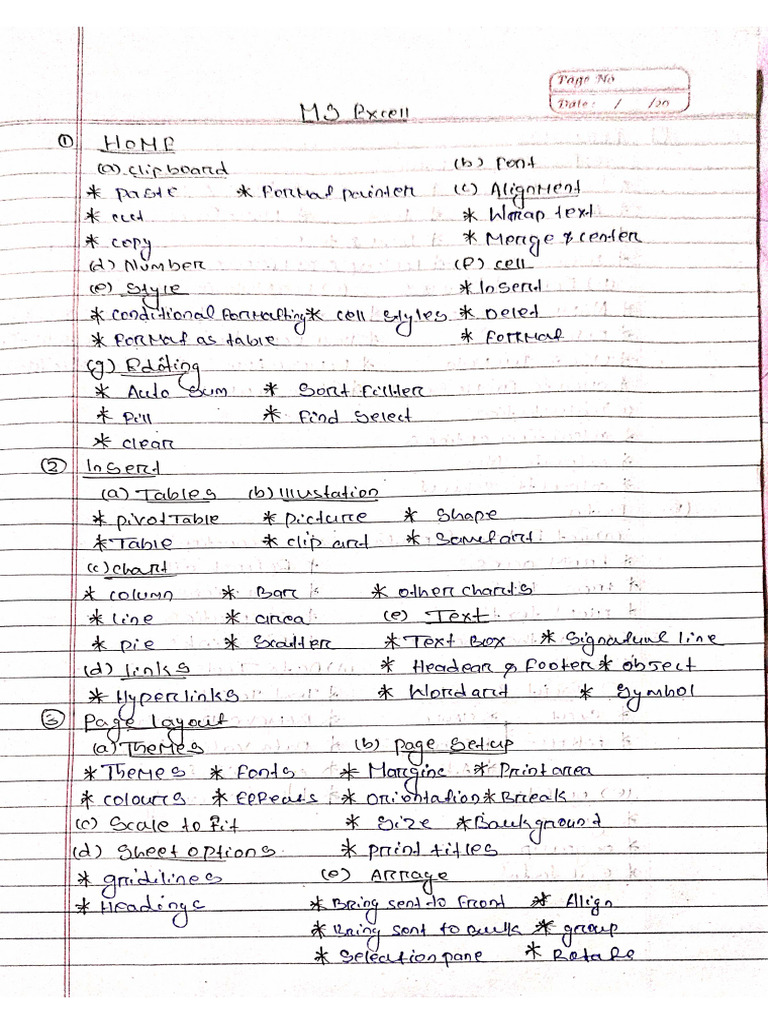 Page No
Date: / /20
MS Excell
① HOME
(a) clipboard (b) Font
* Paste * Format painter (c) Alignment
* cut * Wrap text
* copy * Merge & center
(d) Number (f) cell
(e) Style * Insert
* conditional formatting * cell styles * Delet
* Format as table * Format
(g) Editing
* Auto Sum * Sort filter
* Fill * Find Select
* clear
② Insert
(a) Tables (b) Illustation
* pivotTable * picture * Shape
* Table * clip art * Somefart
(c) chart
* column * Bar * other charts
* line * area (e) Text
* pie * Scatter * Text Box * Signatual line
(d) links * Headear & Footer * object
* Hyperlinks * Wordard * Symbol
③ Page layout
(a) Themes (b) page Setup
* Themes * Fonts * Margine * Print area
* colours * Effeats * Oriontation * Break
(c) Scale to fit * Size * Baukground
(d) Sheet options * print titles
* gridilines (e) Arrage
* Headings * Bring sent to Front * Align
* Bring sent to Bulk * group
* Seleationpane * Rotate